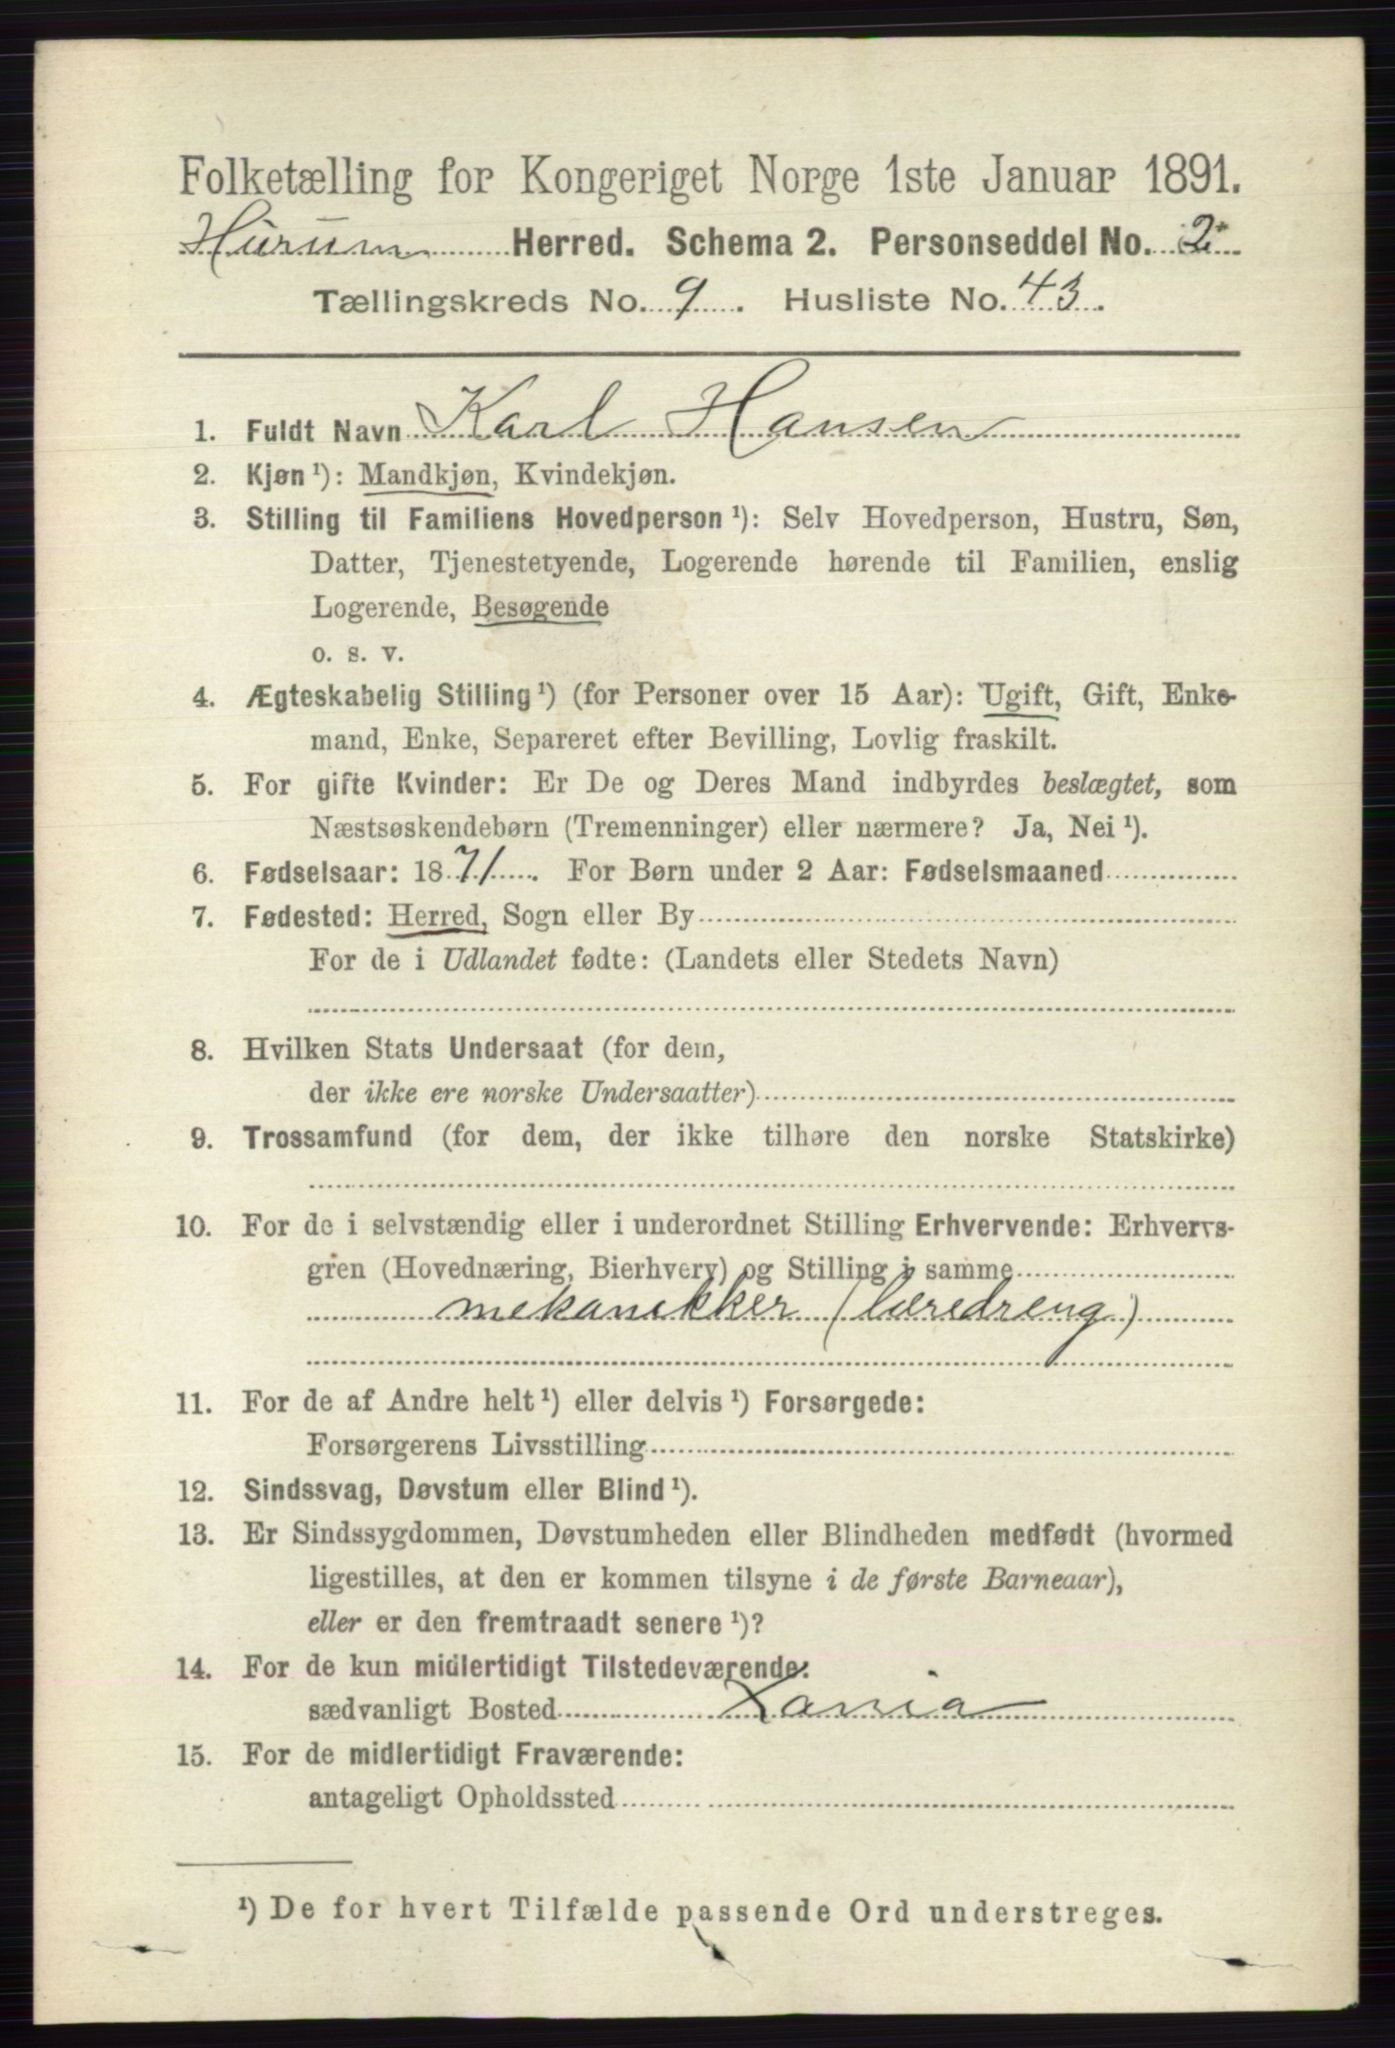 Folketælling for Kongeriget Norge 1ste Januar 1891.
Hurum Herred. Schema 2. Personseddel No. 2
Tællingskreds No. 9. Husliste No. 43.
1. Fuldt Navn Karl Hansen
2. Kjøn ¹): Mandkjøn, Kvindekjøn.
3. Stilling til Familiens Hovedperson ¹): Selv Hovedperson, Hustru, Søn,
Datter, Tjenestetyende, Logerende hørende til Familien, enslig
Logerende, Besøgende
o. s. v.
4. Ægteskabelig Stilling ¹) (for Personer over 15 Aar): Ugift, Gift, Enke-
mand, Enke, Separeret efter Bevilling, Lovlig fraskilt.
5. For gifte Kvinder: Er De og Deres Mand indbyrdes beslægtet, som
Næstsøskendebørn (Tremenninger) eller nærmere? Ja, Nei ¹).
6. Fødselsaar: 1871. For Børn under 2 Aar: Fødselsmaaned
7. Fødested: Herred, Sogn eller By
For de i Udlandet fødte: (Landets eller Stedets Navn)
8. Hvilken Stats Undersaat (for dem,
der ikke ere norske Undersaatter)
9. Trossamfund (for dem, der ikke tilhøre den norske Statskirke)
10. For de i selvstændig eller i underordnet Stilling Erhvervende: Erhvervs-
gren (Hovednæring, Bierhverv) og Stilling i samme
mekanikker (læredreng)
11. For de af Andre helt ¹) eller delvis ¹) Forsørgede:
Forsørgerens Livsstilling
12. Sindssvag, Døvstum eller Blind ¹).
13. Er Sindssygdommen, Døvstumheden eller Blindheden medfødt (hvormed
ligestilles, at den er kommen tilsyne i de første Barneaar),
eller er den fremtraadt senere ¹)?
14. For de kun midlertidigt Tilstedeværende:
sædvanligt Bosted Xania
15. For de midlertidigt Fraværende:
antageligt Opholdssted
¹) De for hvert Tilfælde passende Ord understreges.